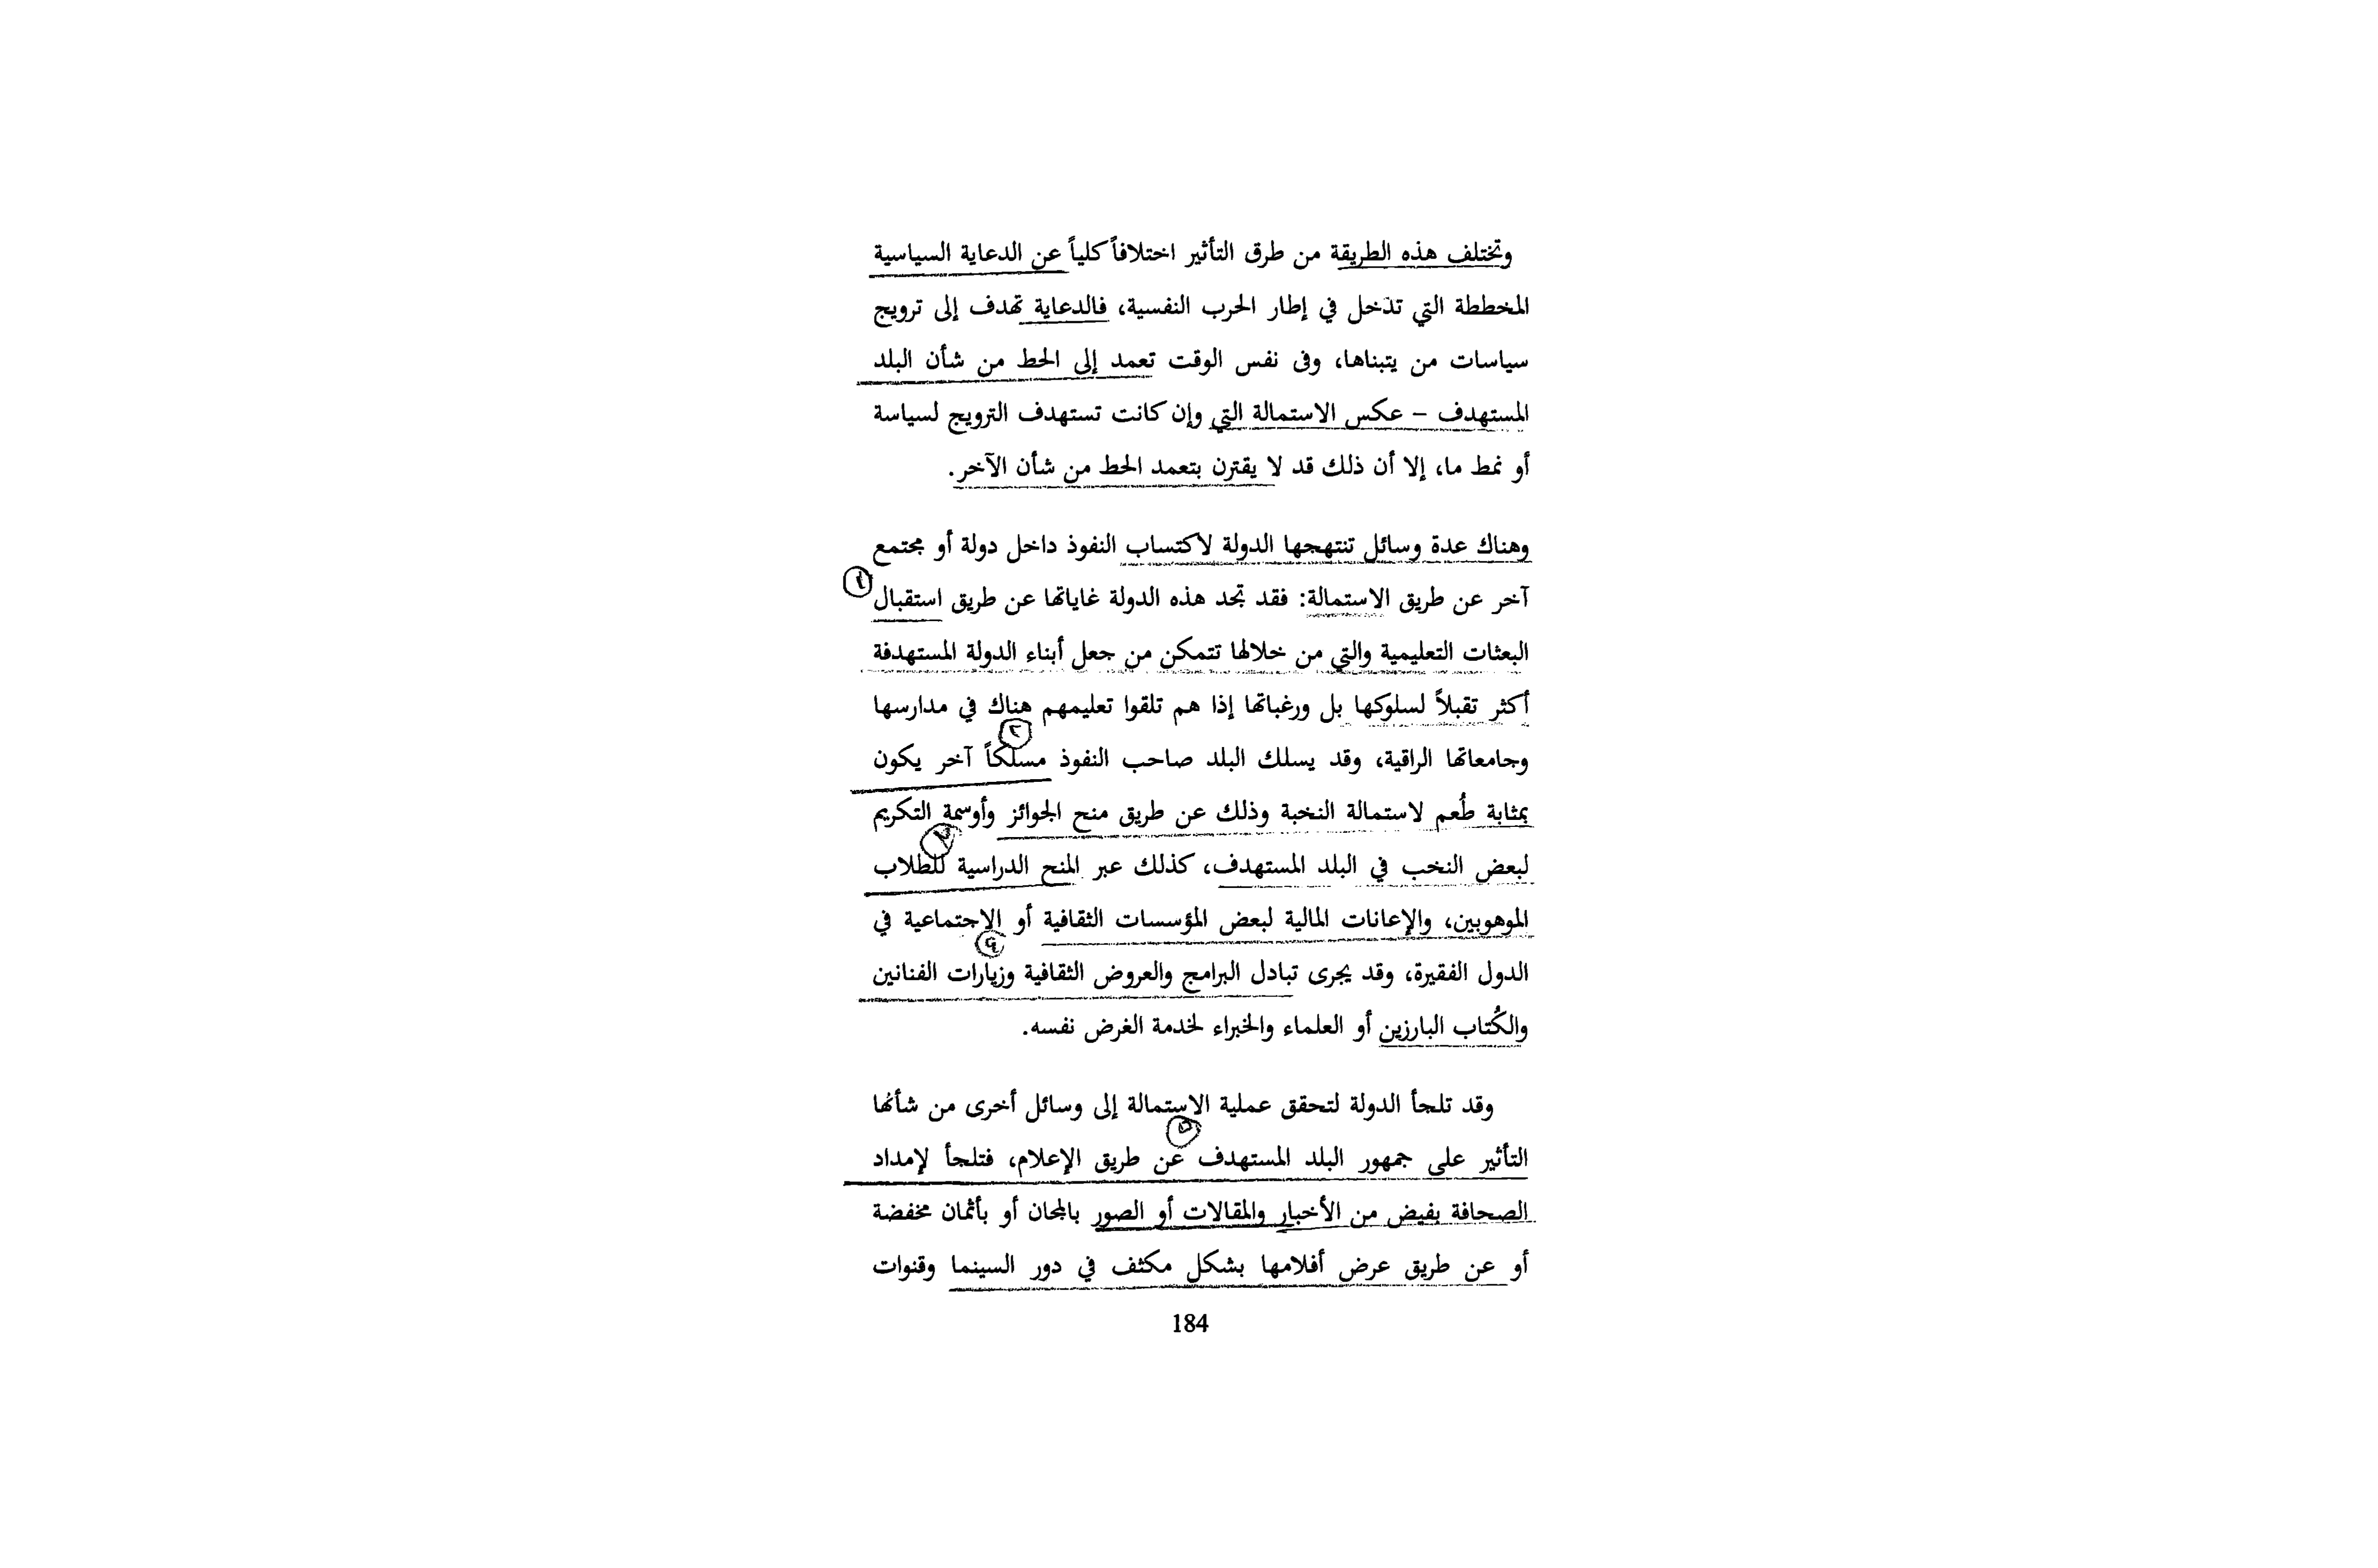 وتختلف هذه الطريقة من طرق التأثير اختلافاً كلياً عن الدعاية السياسية
المخططة التي تدخل في إطار الحرب النفسية، فالدعاية تهدف إلى ترويج
سياسات من يتبناها، وفى نفس الوقت تعمد إلى الحط من شأن البلد
المستهدف – عكس الاستمالة التي وإن كانت تستهدف الترويج لسياسة
أو نمط ما، إلا أن ذلك قد لا يقترن بتعمد الحط من شأن الآخر.
وهناك عدة وسائل تنتهجها الدولة لاكتساب النفوذ داخل دولة أو مجتمع
آخر عن طريق الاستمالة: فقد تجد هذه الدولة غاياتها عن طريق استقبال
البعثات التعليمية والتي من خلالها تتمكن من جعل أبناء الدولة المستهدفة
أكثر تقبلاً لسلوكها بل ورغباتها إذا هم تلقوا تعليمهم هناك في مدارسها
٢
وجامعاتها الراقية، وقد يسلك البلد صاحب النفوذ مسلكاً آخر يكون
بمثابة طُعم لاستمالة النخبة وذلك عن طريق منح الجوائز وأوسمة التكريم
لبعض النخب في البلد المستهدف، كذلك عبر المنح الدراسية للطلاب
الموهوبين، والإعانات المالية لبعض المؤسسات الثقافية أو الاجتماعية في
الدول الفقيرة، وقد يجرى تبادل البرامج والعروض الثقافية وزيارات الفنانين
والكُتاب البارزين أو العلماء والخبراء لخدمة الغرض نفسه.
وقد تلجأ الدولة لتحقق عملية الاستمالة إلى وسائل أخرى من شأنها
٥
التأثير على جمهور البلد المستهدف عن طريق الإعلام، فتلجأ لإمداد
الصحافة بفيض من الأخبار والمقالات أو الصور بالمجان أو بأثمان مخفضة
أو عن طريق عرض أفلامها بشكل مكثف في دور السينما وقنوات
184